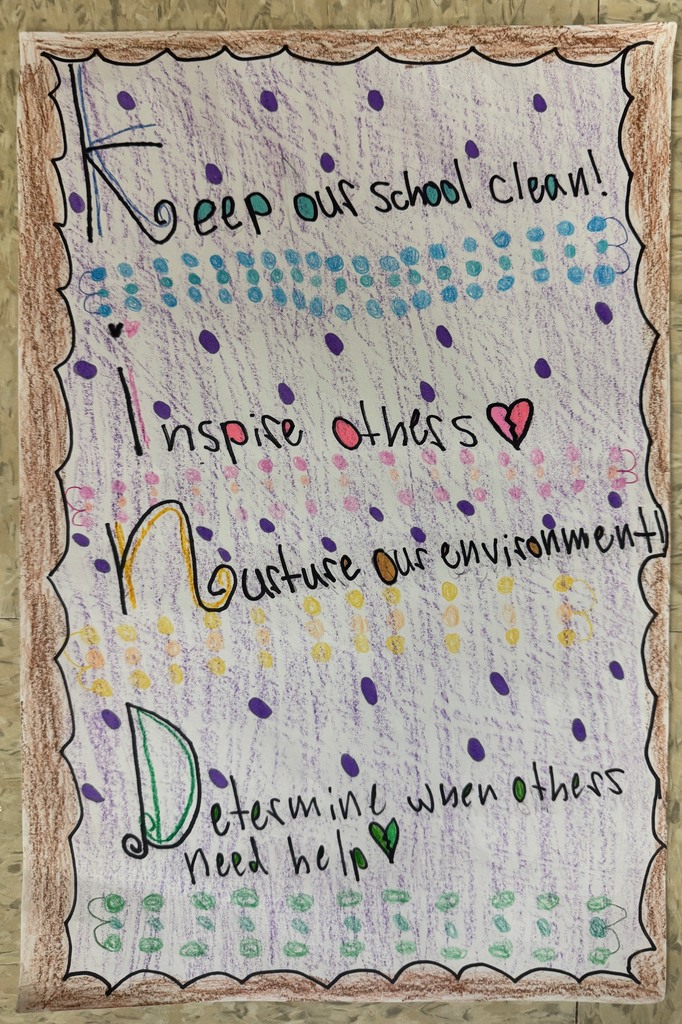 Keep our school clean!
Inspire others
Nurture our environment!
Determine when others
need help